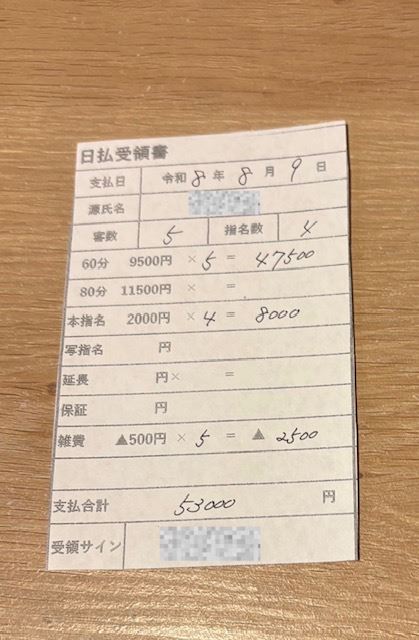 日払受領書
支払日 令和 8 年 8 月 9 日
源氏名
客数 5 指名数 4
60分 9500円 × 5 = 47500
80分 11500円 × =
本指名 2000円 × 4 = 8000
写指名 円
延長 円× =
保証 円
雑費 ▲500円 × 5 = ▲ 2500
支払合計 53000 円
受領サイン